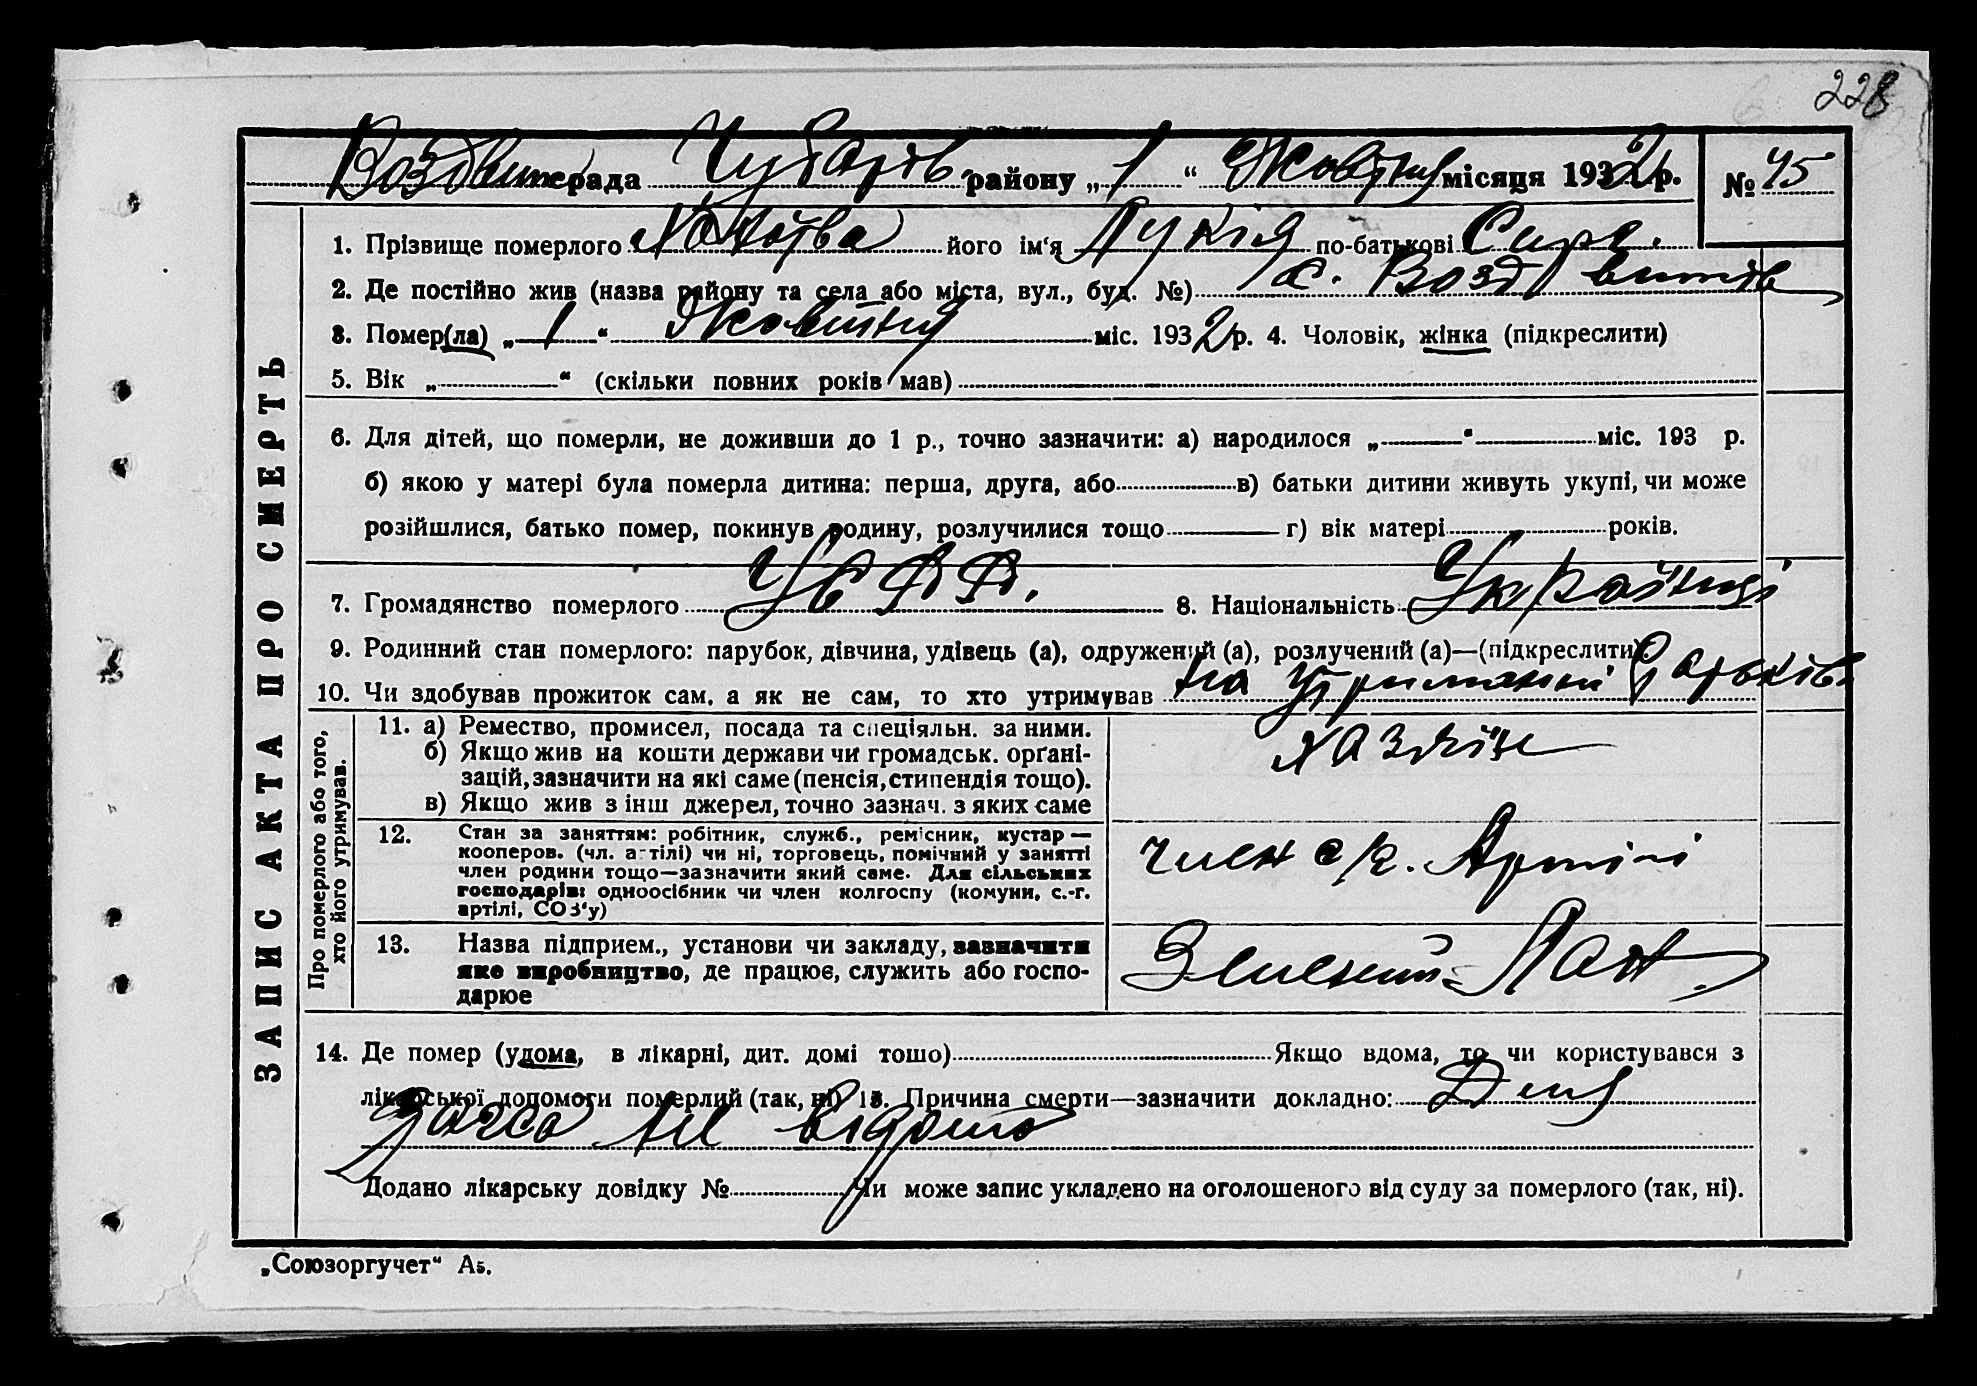 228
Воздвижс рада Чубарів. району „1“ Жовтня місяця 1932 р. № 45
ЗАПИС АКТА ПРО СМЕРТЬ
1. Прізвище померлого його ім‘я Лукія по-батькові
2. Де постійно жив (назва району та села або міста, вул., буд. №) с.
3. Помер(ла) „1“ Жовтня міс. 1932 р. 4. Чоловік, жінка (підкреслити)
5. Вік „ “ (скільки повних років мав)
6. Для дітей, що померли, не доживши до 1 р., точно зазначити: а) народилося „ “ міс. 193 р.
б) якою у матері була померла дитина: перша, друга, або в) батьки дитини живуть укупі, чи може
розійшлися, батько помер, покинув родину, розлучилися тощо г) вік матері років.
7. Громадянство померлого УСРР. 8. Національність
9. Родинний стан померлого: парубок, дівчина, удівець (а), одружений (а), розлучений (а)—(підкреслити).
10. Чи здобував прожиток сам, а як не сам, то хто утримував на утриманні батьків
Про померлого або того,
хто його утримував.
11. а) Ремество, промисел, посада та спеціяльн. за ними.
б) Якщо жив на кошти держави чи громадськ. орґані-
зацій, зазначити на які саме (пенсія, стипендія тощо).
в) Якщо жив з інш джерел, точно зазнач. з яких саме
12. Стан за заняттям: робітник, служб., ремісник, кустар —
кооперов. (чл. артілі) чи ні, торговець, помічний у занятті
член родини тощо—зазначити який саме. Для сільських
господарів: одноосібник чи член колгоспу (комуни, с.-г.
артілі, СОЗ‘у)
член с/г. Артілі
13. Назва підприєм., установи чи закладу, зазначити
яке виробництво, де працює, служить або госпо-
дарює
14. Де помер (удома, в лікарні, дит. домі тошо) Якщо вдома, то чи користувався з
лікарської допомоги померлий (так, ні) 15. Причина смерти—зазначити докладно:
не відомо
Додано лікарську довідку № Чи може запис укладено на оголошеного від суду за померлого (так, ні).
„Союзоргучет“ А5.